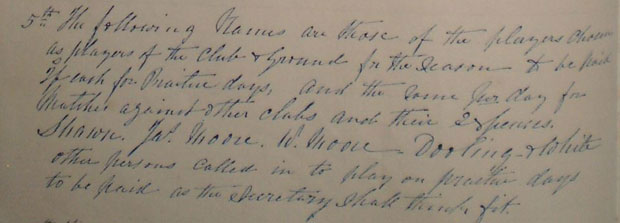 5th The following Names are those of the players chosen
as players of the Club & Ground for the Season to be paid
each for Practice days, and the same per day for
Matches against other clubs and their Expences.
Shawn. Jas. Moore. W. Moore Dooling & White
other persons called in to play on practice days
to be paid as the Secretary shall think fit